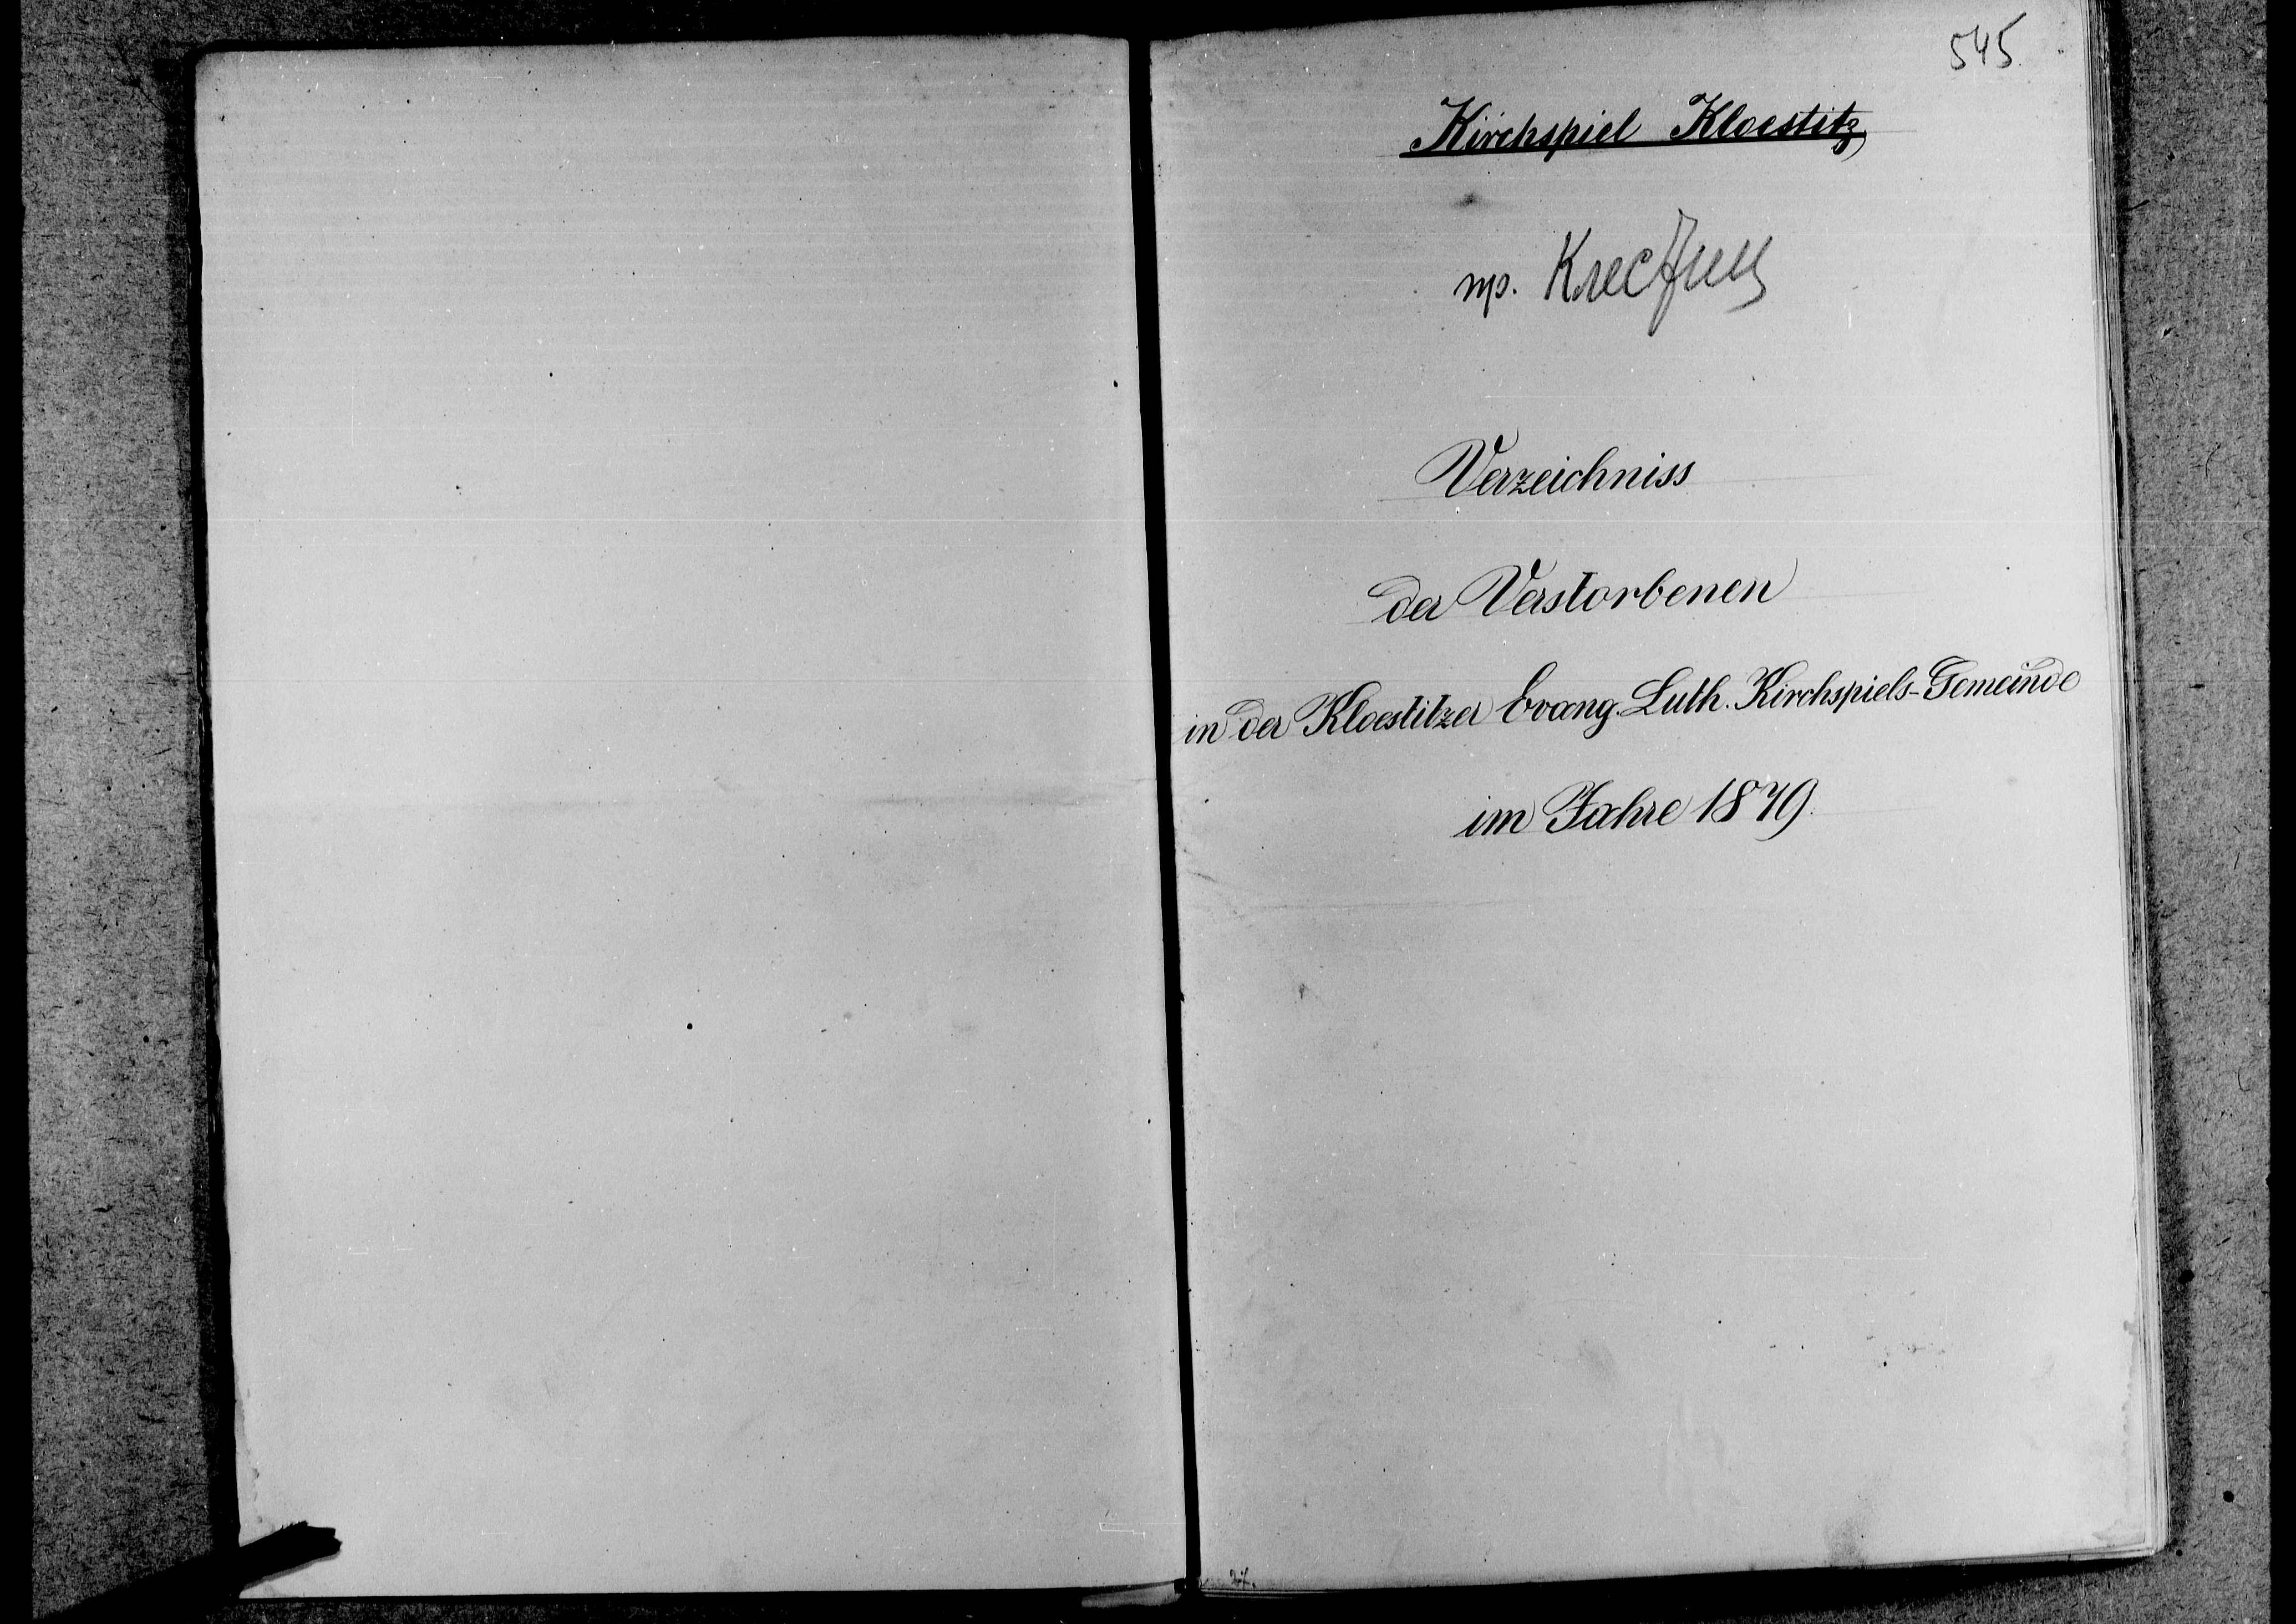 545.
Kirchspiel Kloestitz
пр. Клестиц
Verzeichniss
der Verstorbenen
in der Kloestitzer Evang. Luth. Kirchspiels-Gemeinde
im Jahre 1879.